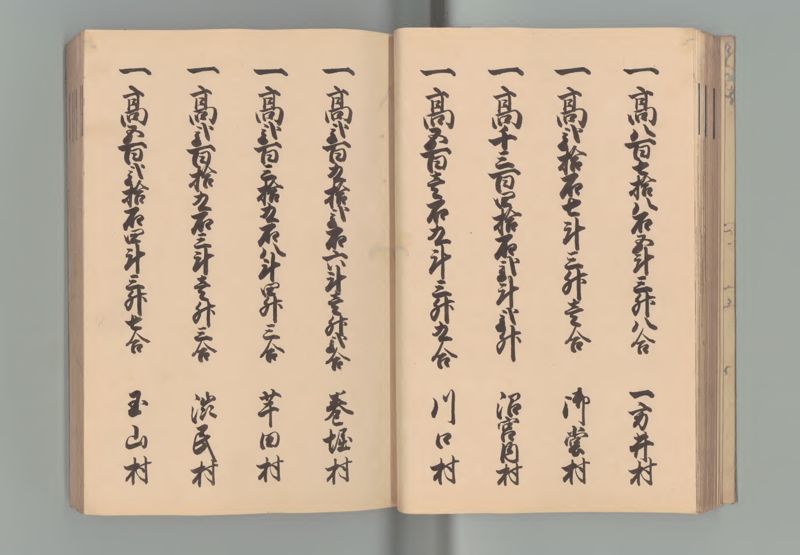 一 高八百七拾八石五斗三升八合 一方井村
一 高弐拾石七斗三升壱合 御堂村
一 高千三百四拾石弐斗弐升 沼宮内村
一 高五百壱石九斗三升九合 川口村
一 高弐百九拾弐石六斗壱升弐合 巻堀村
一 高弐百三拾五石八斗四升三合 芋田村
一 高弐百拾九石三斗壱升三合 渋民村
一 高五百弐拾石四斗三升七合 玉山村